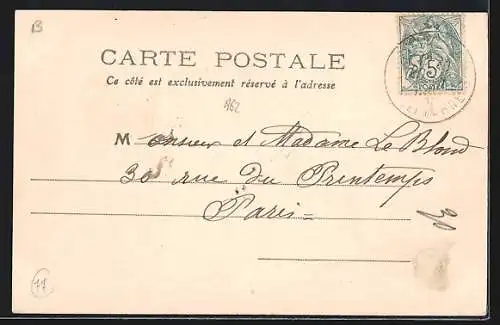 B
CARTE POSTALE
Ce côté est exclusivement réservé à l'adresse
Monsieur et Madame Le Blond
30 rue du Printemps
Paris =
30
77
5
POSTES